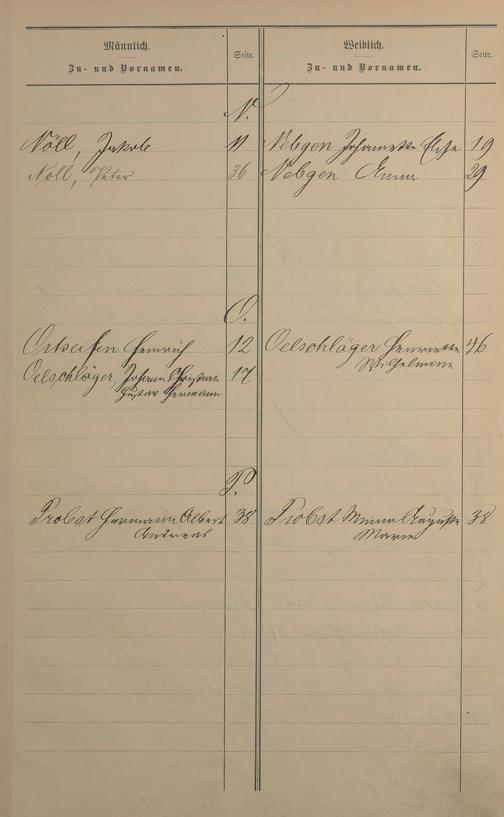 Männlich. Seite. Weiblich. Seite.
Zu- und Vornamen. Zu- und Vornamen.
N.
Nöll, Jakob 11 Nebgen Johannette Elise 19
Noll, Peter 36 Nebgen Anna 29
O.
Ortseifen Heinrich 12 Oelschläger Henriette 46
Wilhelmine
Oelschläger, Johann Christian 17
Gustav Hermann
P.
Probst Hermann Albert 38 Probst Minna Auguste 38
Andreas Marie